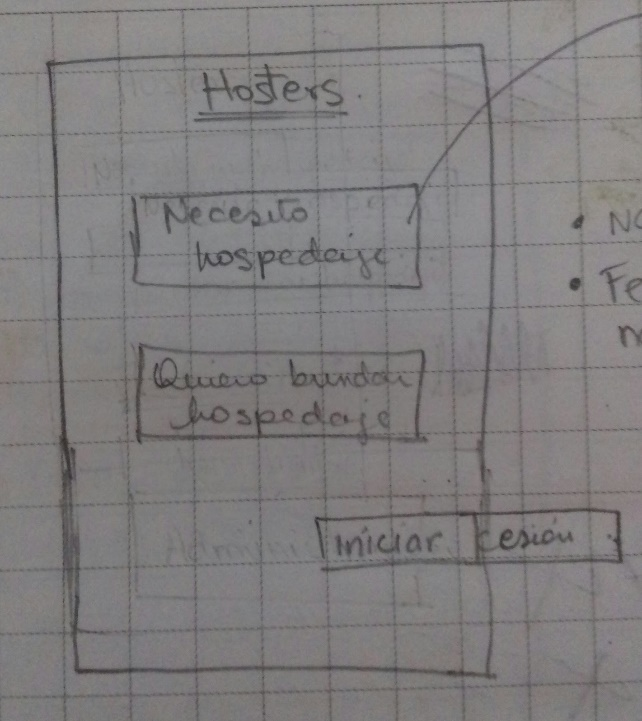 Hosters.
Necesito
hospedaje
Quiero brindar
hospedaje
iniciar cesión
• No
• Fe